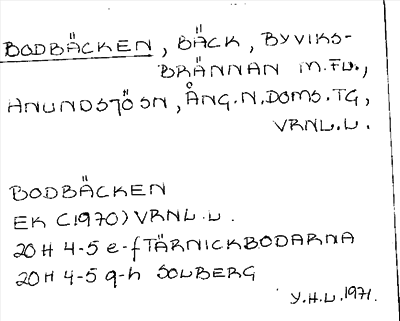 BODBÄCKEN, BÄCK, BYVIKS-
BRÄNNAN M.FL.,
ANUNDSJÖ SN, ÅNG.N.DOMS.TG,
VRNL.L.
BODBÄCKEN
EK (1970) VRNL.L.
20H 4-5 e-f TÄRNICKBODARNA
20H 4-5 g-h SOLBERG
Y.H.L. 1971.